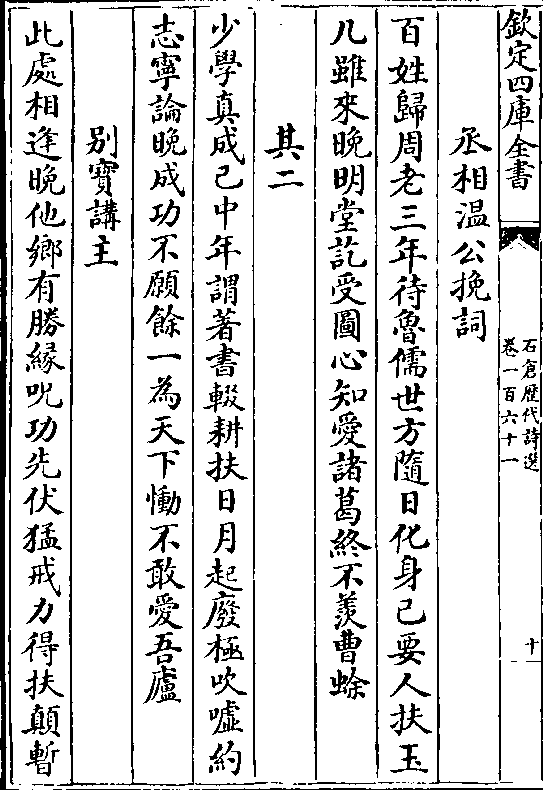 欽定四庫全書
石倉歴代詩選
卷一百六十一
十
丞相温公挽詞
百姓歸周老三年待魯儒世方隨日化身已要人扶玉
几雖來晚明堂訖受圖心知愛諸葛終不羡曹蜍
其二
少學真成已中年謂著書輟耕扶日月起廢極吹嘘約
志寧論晚成功不願餘一為天下慟不敢愛吾廬
别寳講主
此處相逢晚他鄉有勝縁呪功先伏猛戒力得扶顛暫